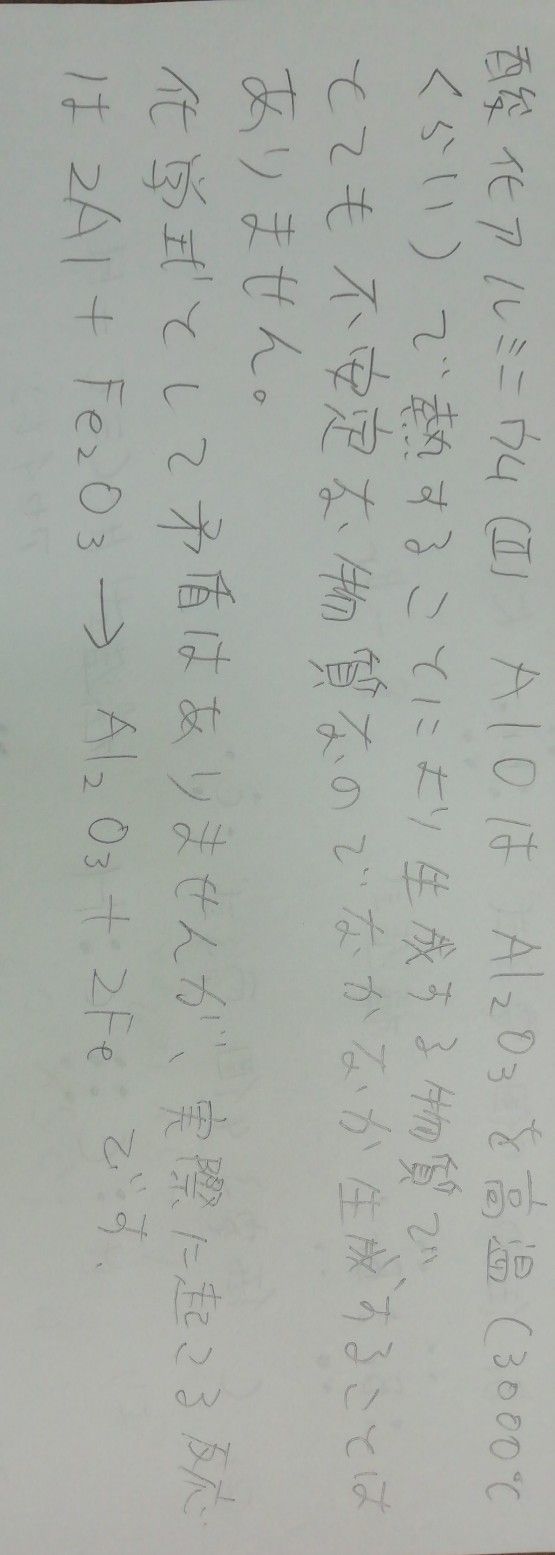 酸化アルミニウム(II) AlOは Al₂O₃を高温(3000℃
くらい)で熱することにより生成する物質で
とても不安定な物質なのでなかなか生成することは
ありません。
化学式として矛盾はありませんが、実際に起こる反応
は 2Al + Fe₂O₃ → Al₂O₃ + 2Fe です。